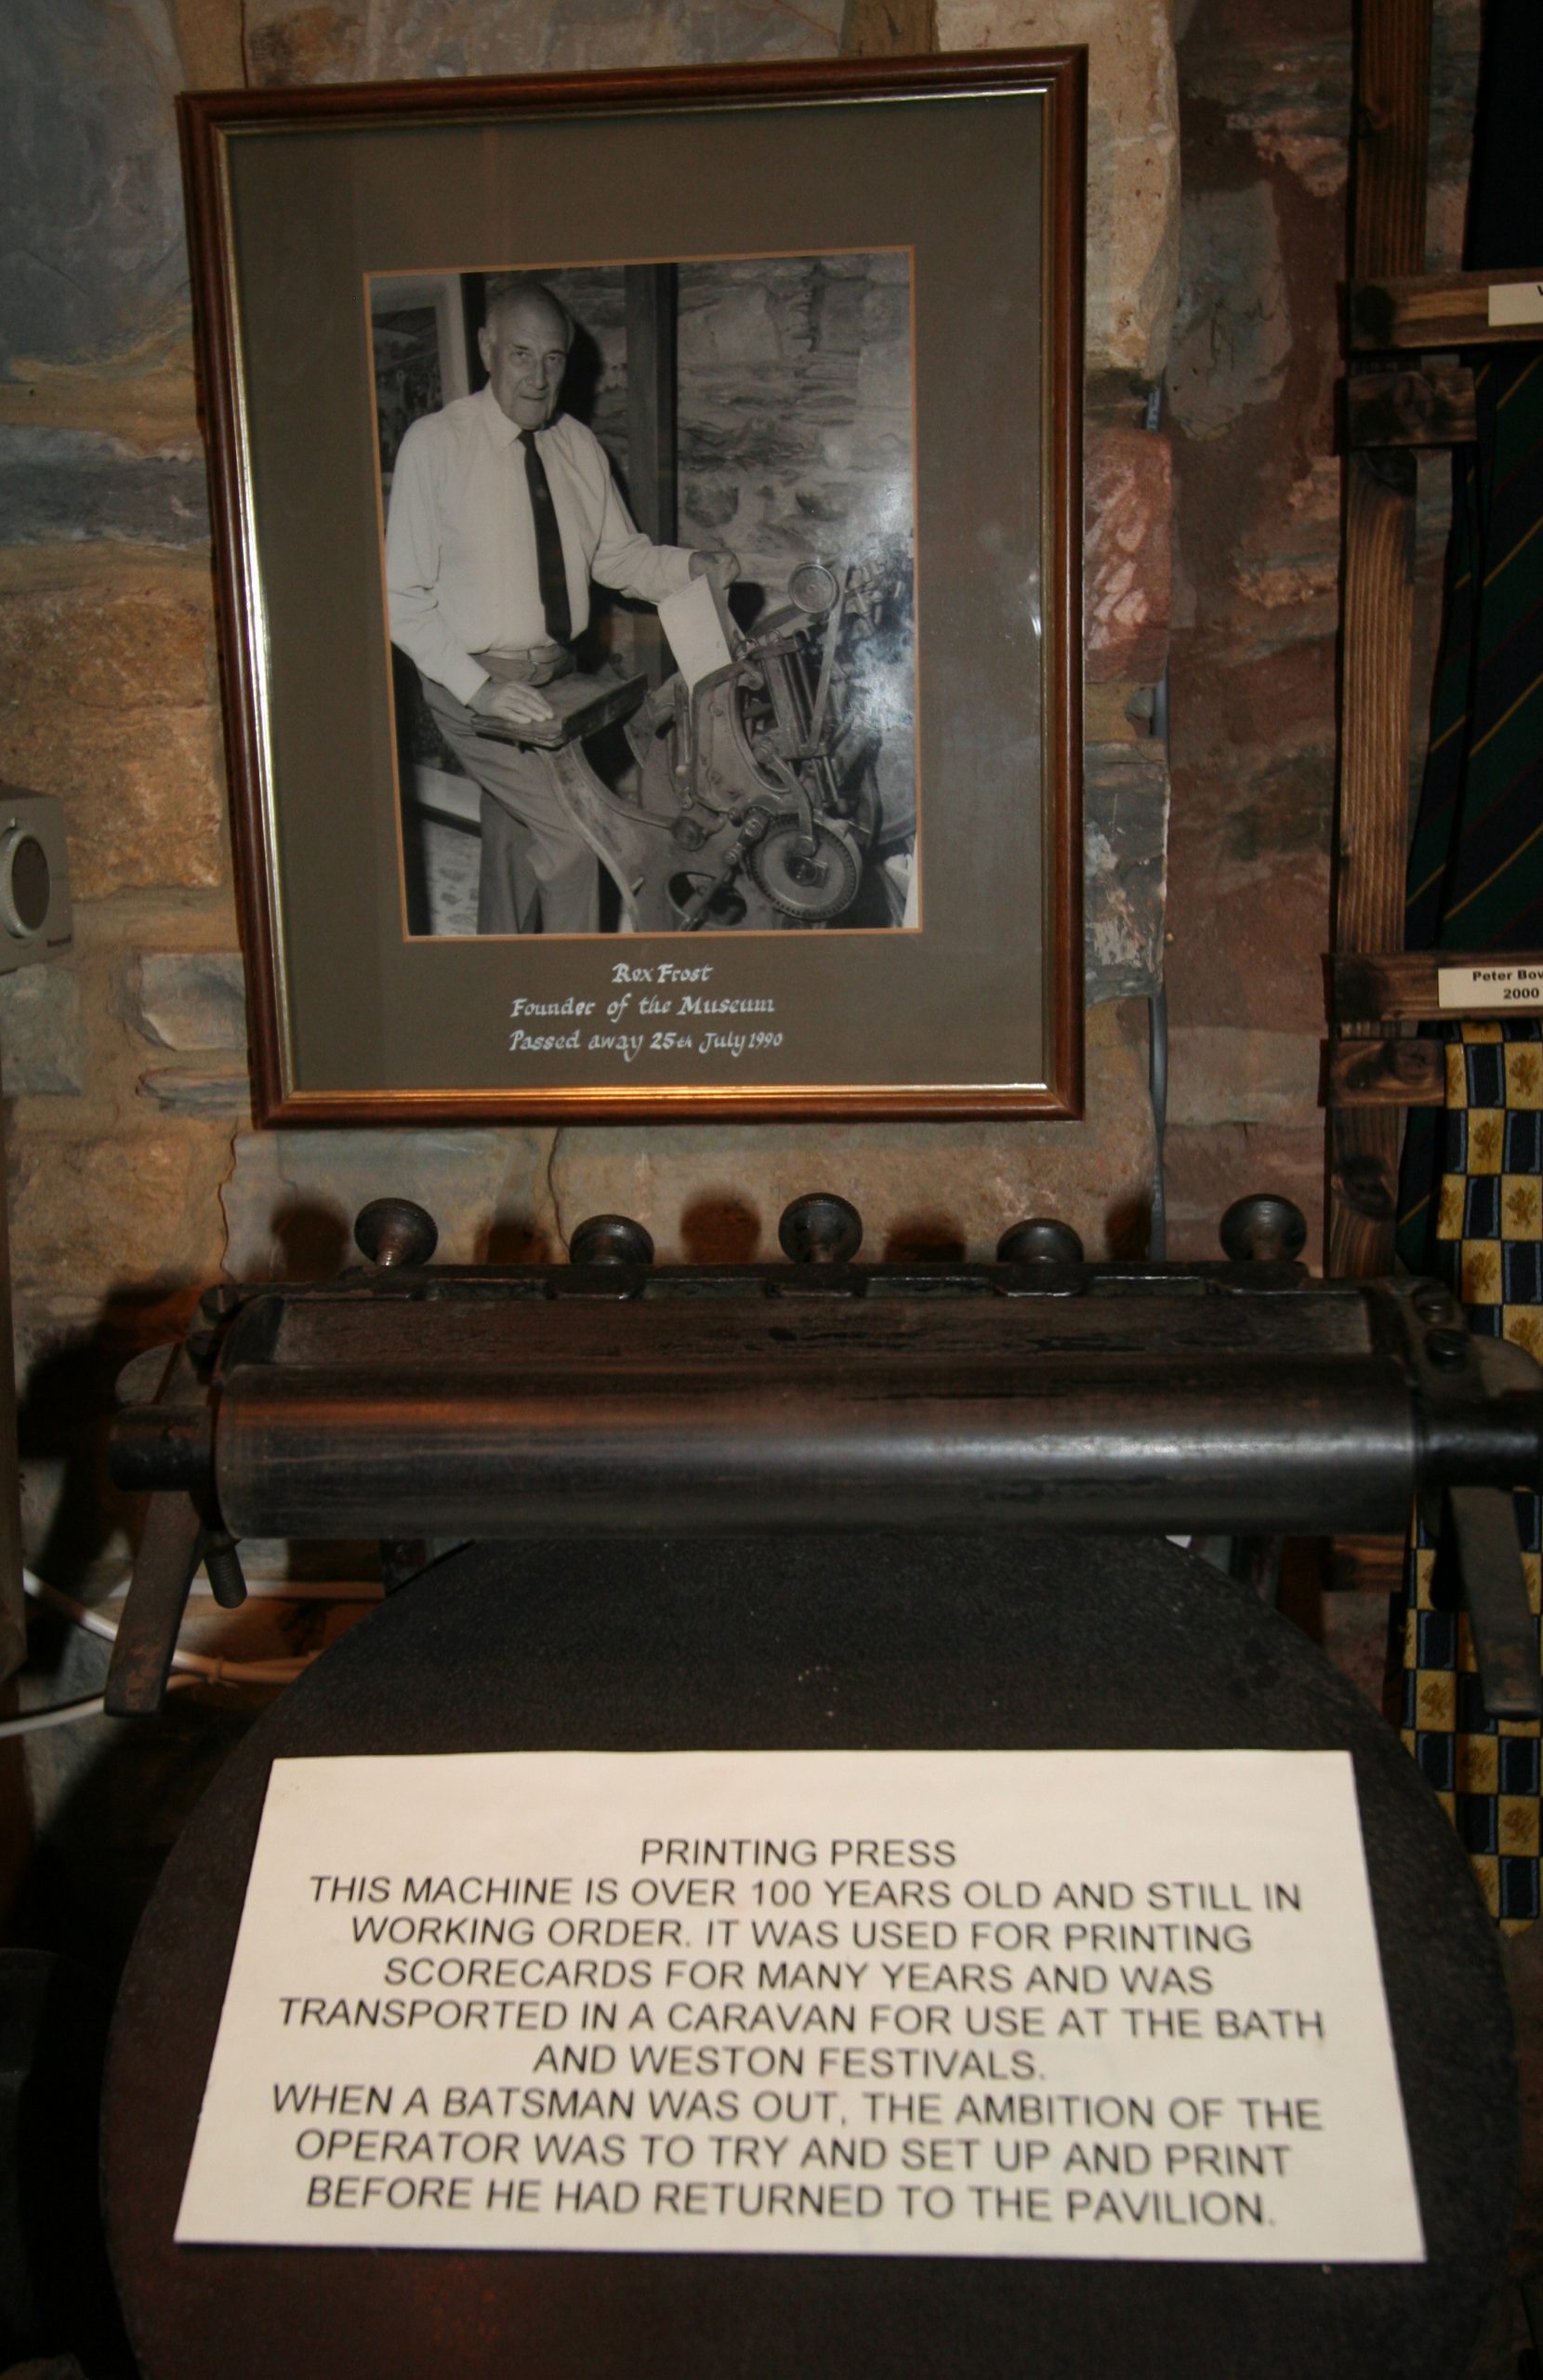 Rex Frost
Founder of the Museum
Passed away 25th July 1990
Honeywell
Peter Bow
2000
PRINTING PRESS
THIS MACHINE IS OVER 100 YEARS OLD AND STILL IN
WORKING ORDER. IT WAS USED FOR PRINTING
SCORECARDS FOR MANY YEARS AND WAS
TRANSPORTED IN A CARAVAN FOR USE AT THE BATH
AND WESTON FESTIVALS.
WHEN A BATSMAN WAS OUT, THE AMBITION OF THE
OPERATOR WAS TO TRY AND SET UP AND PRINT
BEFORE HE HAD RETURNED TO THE PAVILION.